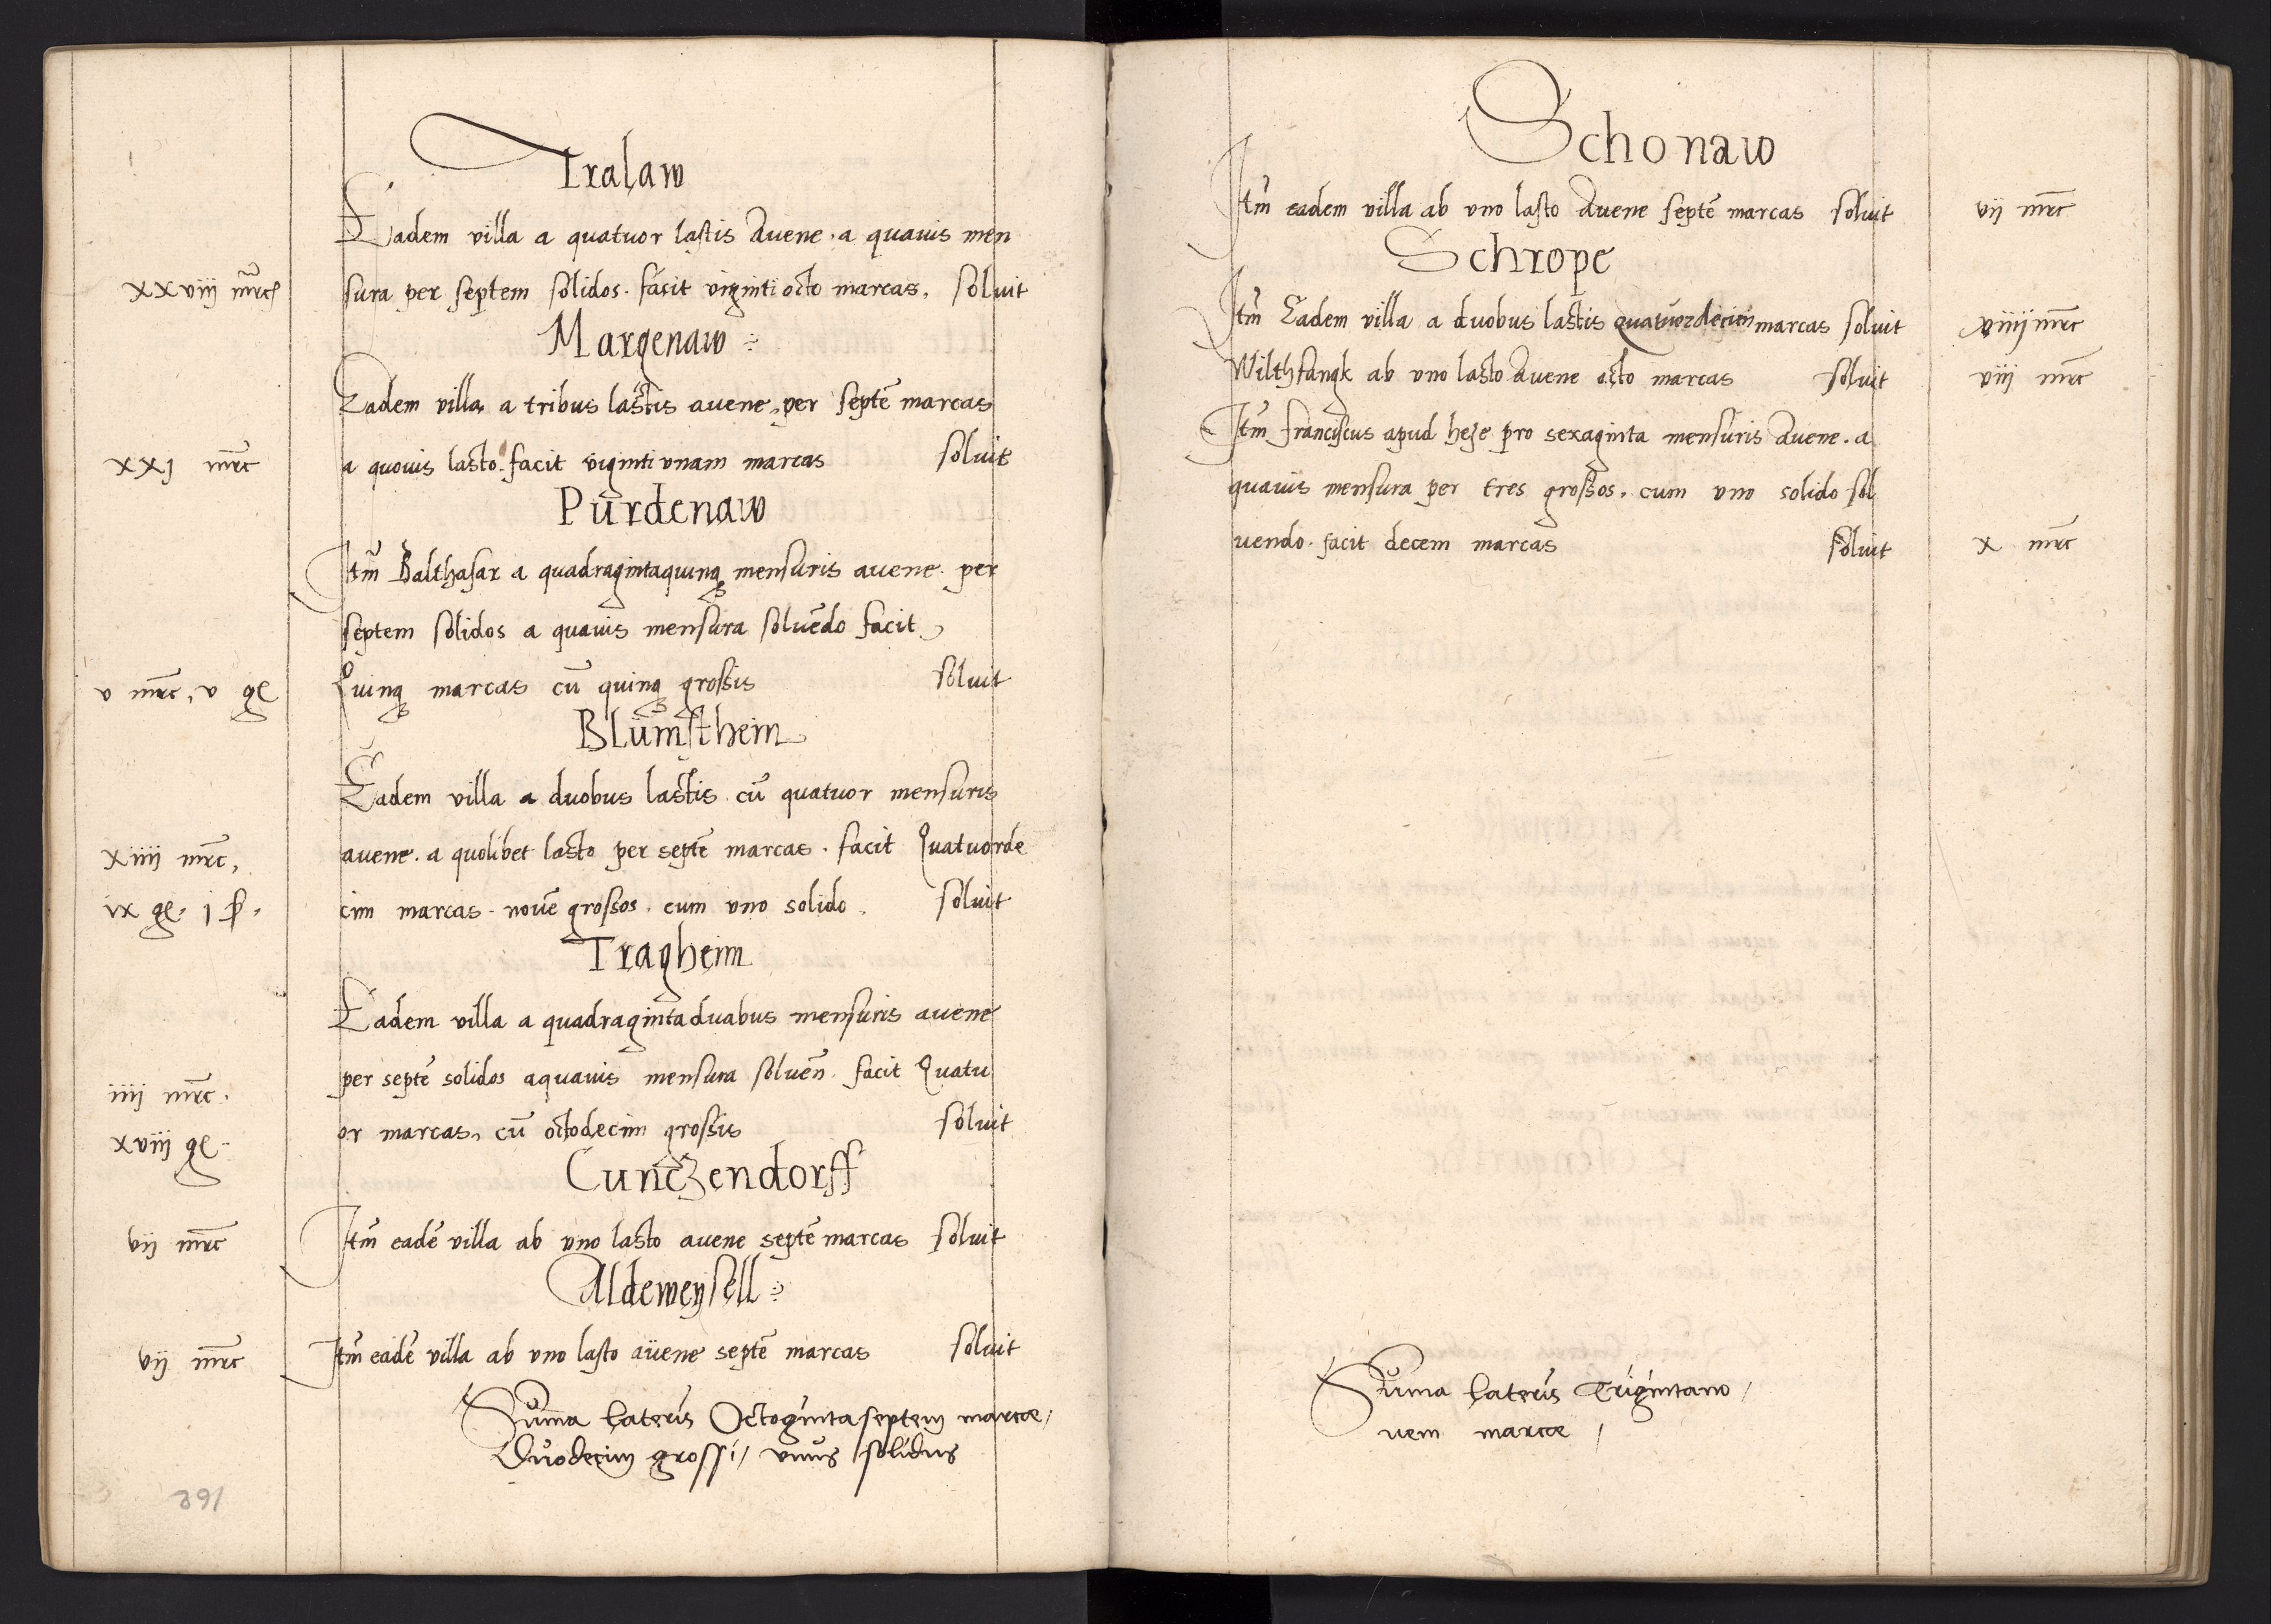 Tralaw
Eadem villa a quatuor lastis Avene · a quavis men
xxviij mrc sura per septem solidos · facit viginti octo marcas, soluit
Margenaw
Eadem villa a tribus lastis avene, per septē marcas
xxj mrc a quovis lasto · facit viginti vnam marcas soluit
Purdenaw
Itm̄ Balthasar a quadragintaquinq mensuris avene · per
septem solidos a quavis mensura soluēdo facit
v mrc, v gr Quinq marcas cū quinq grossis soluit
Blumsthein
Eadem villa a duobus lastis cū quatuor mensuris
xiiij mrc, avene · a quolibet lasto per septē marcas · facit Quatuorde
ix gr · j ſ · cim marcas · novē grossos · cum vno solido · soluit
Tragheim
Eadem villa a quadragintaduabus mensuris avene
iiij mrc · per septē solidos a quavis mensura soluēn · facit Quatu
xviij gr · or marcas, cū octodecim grossis soluit
Cunczendorff
vij mrc Itm̄ eadē villa ab vno lasto avene septē marcas soluit
Aldeweysell
vij mrc Itm̄ eadē villa ab vno lasto avene septē marcas soluit
Sum̄a Lateris Octogintaseptem marcae /
Duodecim grossi / vnus solidus
291
Schonaw
Itm̄ eadem villa ab vno lasto Avene septē marcas soluit vij mrc
Schrope
Itm̄ Eadem villa a duobus lastis quatuordecim marcas soluit xiiij mrc
Wilthfangk ab vno lasto Avene octo marcas soluit viij mrc
Itm̄ franciscus apud heze pro sexaginta mensuris Avene · a
quavis mensura per tres grossos · cum vno solido sol
vendo · facit decem marcas soluit x mrc
Suma Lateris Trigintano /
vem marcae /